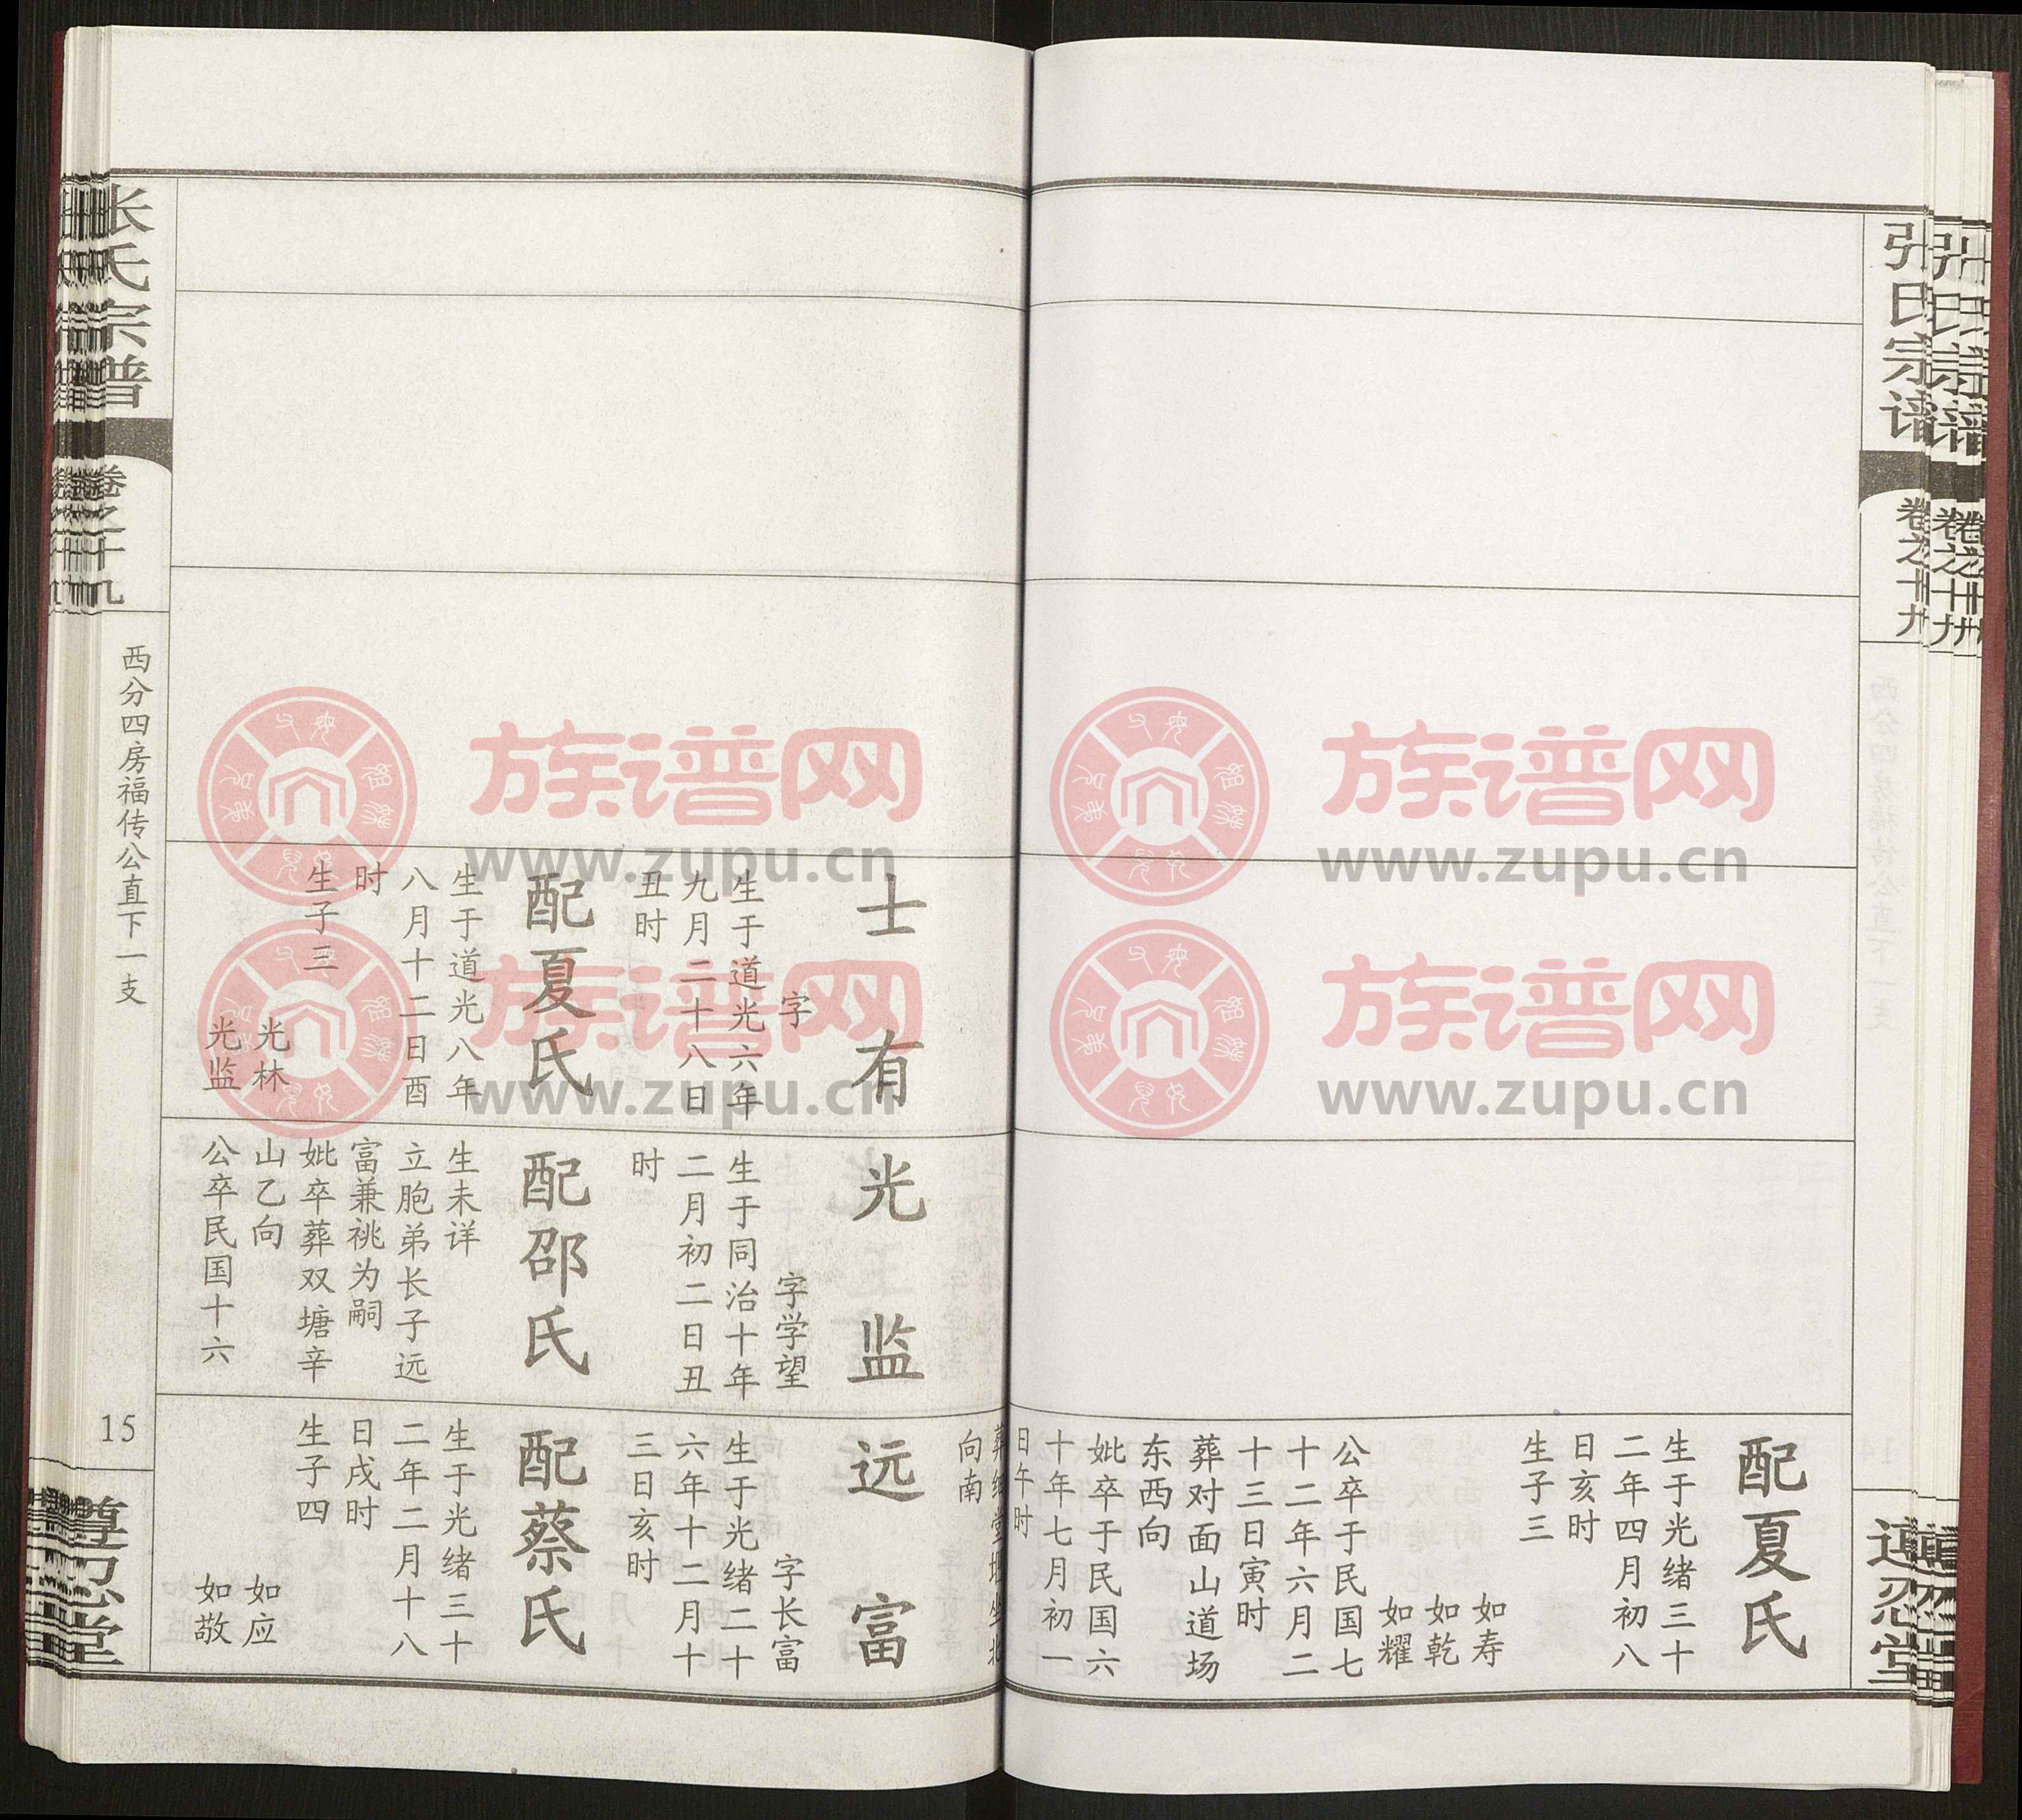 张氏宗谱
卷之十九
配夏氏
生于光绪三十
二年四月初八
日亥时
生子三
如寿
如乾
如耀
公卒于民国七
十二年六月二
十三日寅时
葬对面山道场
东西向
妣卒于民国六
十年七月初一
日午时
向南
士有
字
生于道光六年
九月二十八日
丑时
配夏氏
生于道光八年
八月十二日酉
时
生子三
光林
光监
光监
字学望
生于同治十年
二月初二日丑
时
配邵氏
生未详
立胞弟长子远
富兼祧为嗣
妣卒葬双塘辛
山乙向
公卒民国十六
远富
字长富
生于光绪二十
六年十二月十
三日亥时
配蔡氏
生于光绪三十
二年二月十八
日戌时
生子四
如应
如敬
张氏宗谱
卷之十九
西分四房福传公直下一支
15
族谱网
www.zupu.cn
族谱网
www.zupu.cn
族谱网
www.zupu.cn
族谱网
www.zupu.cn